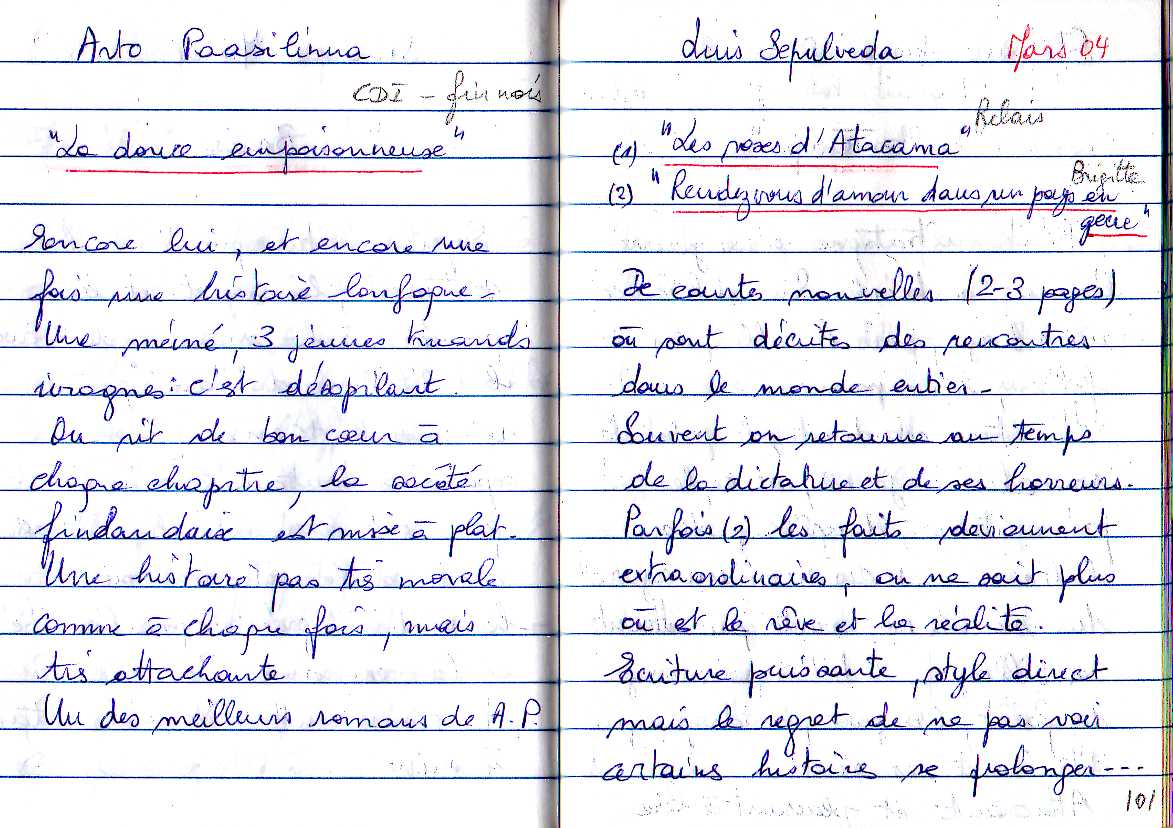 Arto Paasilinna
CDI - finnois
"La douce empoisonneuse"
Encore lui, et encore une
fois une histoire loufoque -
Une mémé, 3 jeunes truands
ivrognes : c'est désopilant.
On rit de bon cœur à
chaque chapitre, la société
finlandaise est mise à plat.
Une histoire pas très morale
comme à chaque fois, mais
très attachante
Un des meilleurs romans de A.P.
Luis Sepulveda Mars 04
Relais
(1) "Les roses d'Atacama"
Brigitte
(2) "Rendez vous d'amour dans un pays en
guerre"
De courtes nouvelles (2-3 pages)
où sont décrites des rencontres
dans le monde entier -
Souvent on retourne au temps
de la dictature et de ses horreurs.
Parfois (2) les faits deviennent
extraordinaires, on ne sait plus
où est le rêve et la réalité.
Ecriture puissante, style direct
mais le regret de ne pas voir
certains histoires se prolonger ---
101